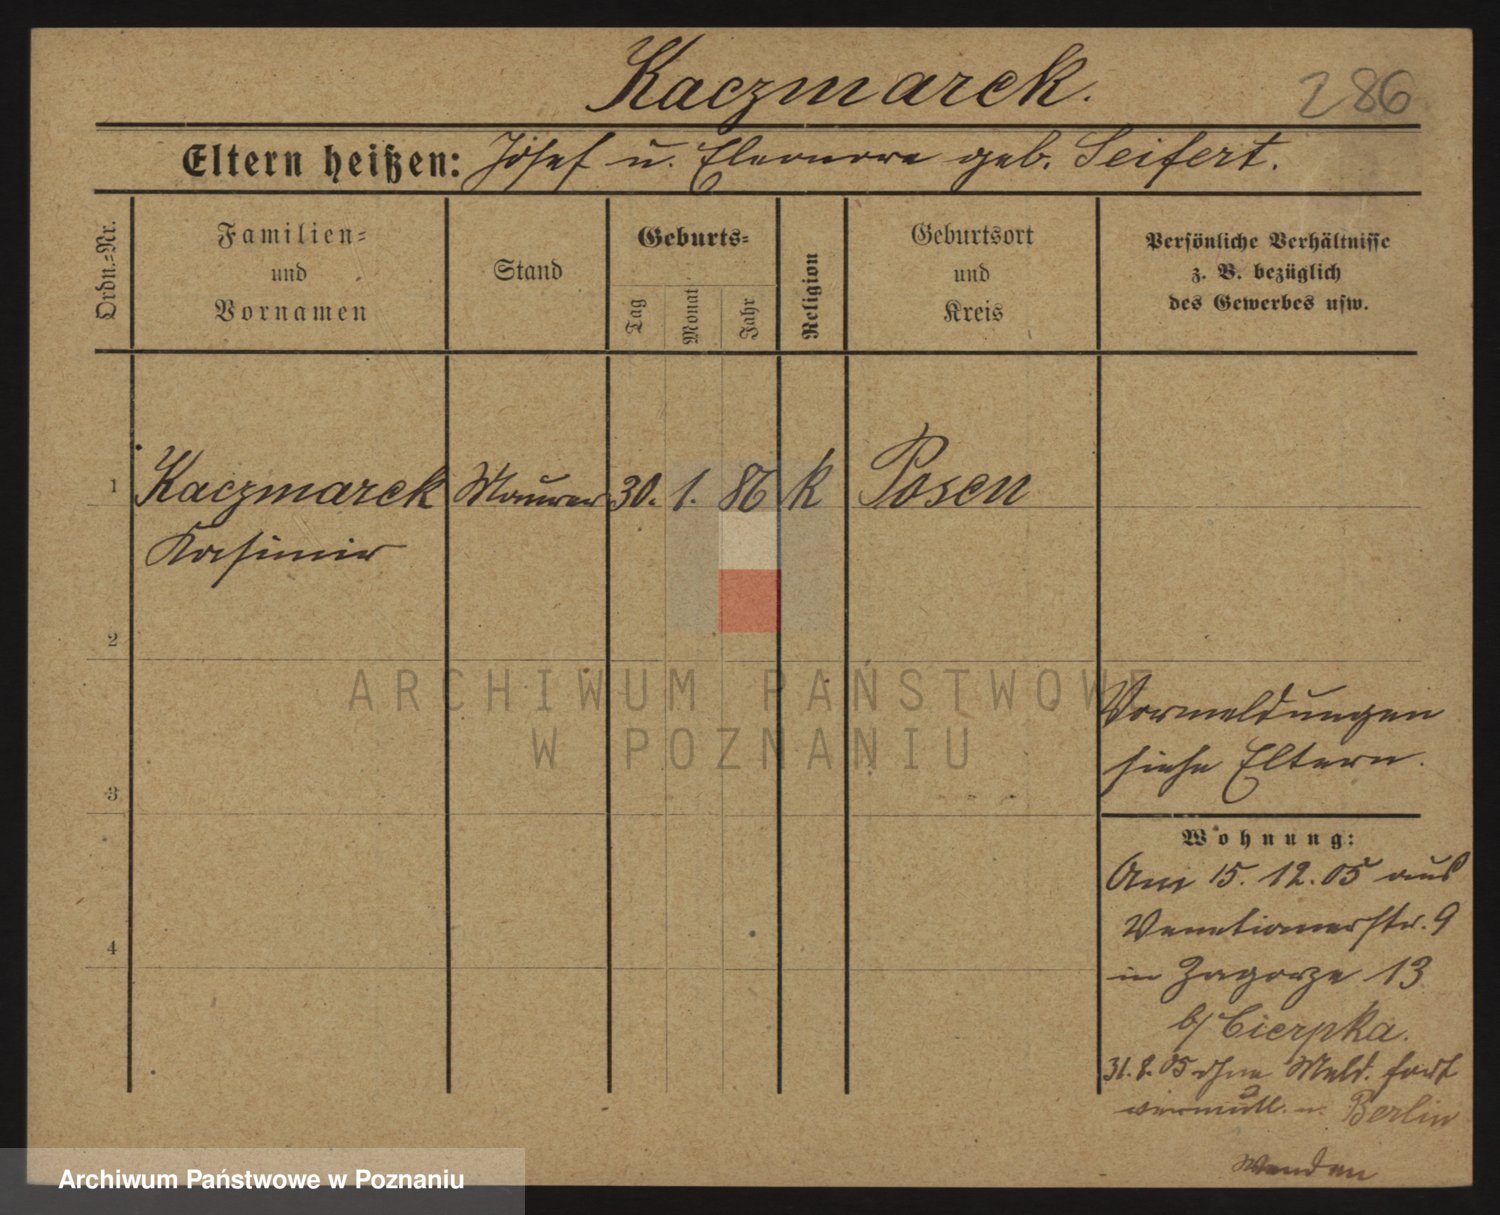 Kaczmarek.
286
Eltern heißen: Josef u. Eleonore geb. Seifert.
Ordn.=Nr.
Familien=
und
Vornamen
Stand
Geburts=
Tag
Monat
Jahr
Religion
Geburtsort
und
Kreis
Persönliche Verhältnisse
z. B. bezüglich
des Gewerbes usw.
1 Kaczmarek Maurer 30. 1. 86 k Posen
Kasimir
2
ARCHIWUM PAŃSTWOWE
W POZNANIU
Vormeldungen
siehe Eltern.
3
Wohnung:
Am 15. 12. 05 aus
Venetianerstr. 9
in Zagorze 13
b/ Cierpka.
4
31. 8. 05 ohne Meld. fort
vermutl. n. Berlin
Wenden
Archiwum Państwowe w Poznaniu